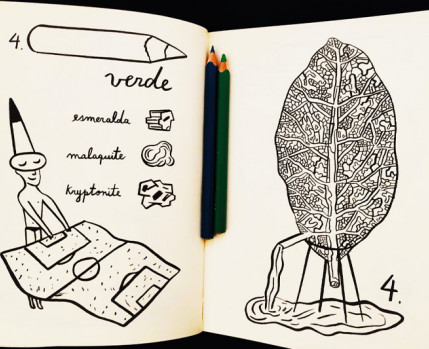 4.
verde
esmeralda
malaquite
kryptonite
4.